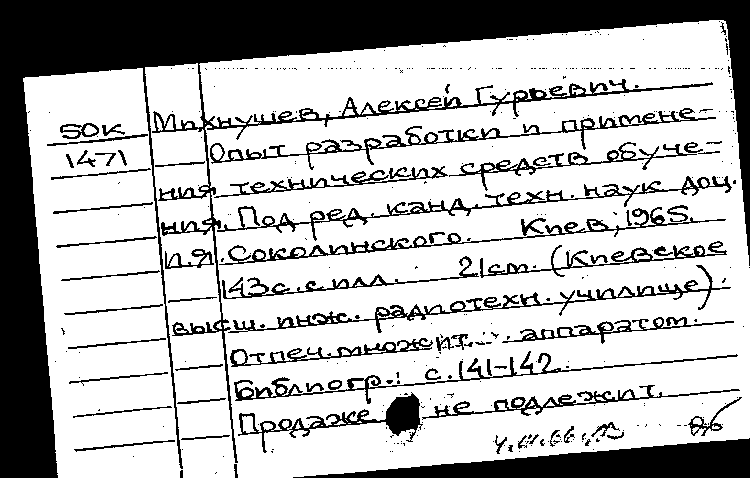 Михнушев, Алексей Гурьевич.
50К
1471
Опыт разработки и примене-
ния технических средств обуче-
ния. Под ред. канд. техн. наук доц.
И.Я. Соколинского. Киев, 1965.
143с. с илл. 21см. (Киевское
высш. инж. радиотехн. училище).
Отпеч. множит. аппаратом.
Библиогр.: с.141-142.
Продаже не подлежит.